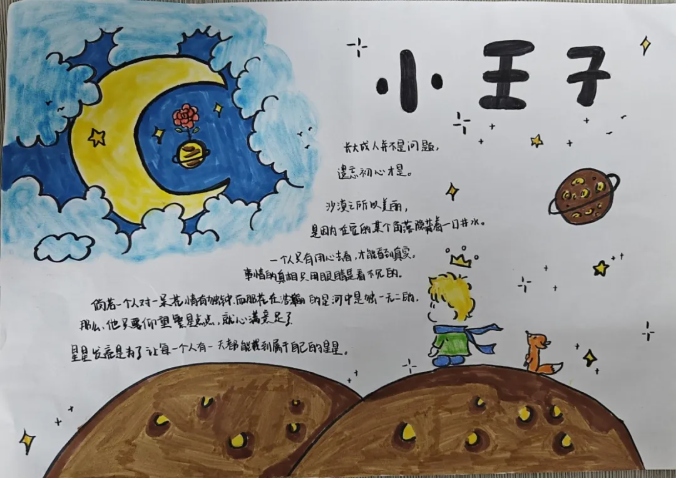 小王子
长大成人并不是问题，
遗忘初心才是。
沙漠之所以美丽，
是因为在它的某个角落隐藏着一口井水。
一个人只有用心去看，才能看到真实。
事情的真相只用眼睛是看不见的。
倘若一个人对一朵花情有独钟，而那花在浩瀚的星河中是独一无二的，
那么，他只要仰望繁星点点，就心满意足了
星星发亮是为了让每一个人有一天都能找到属于自己的星星。